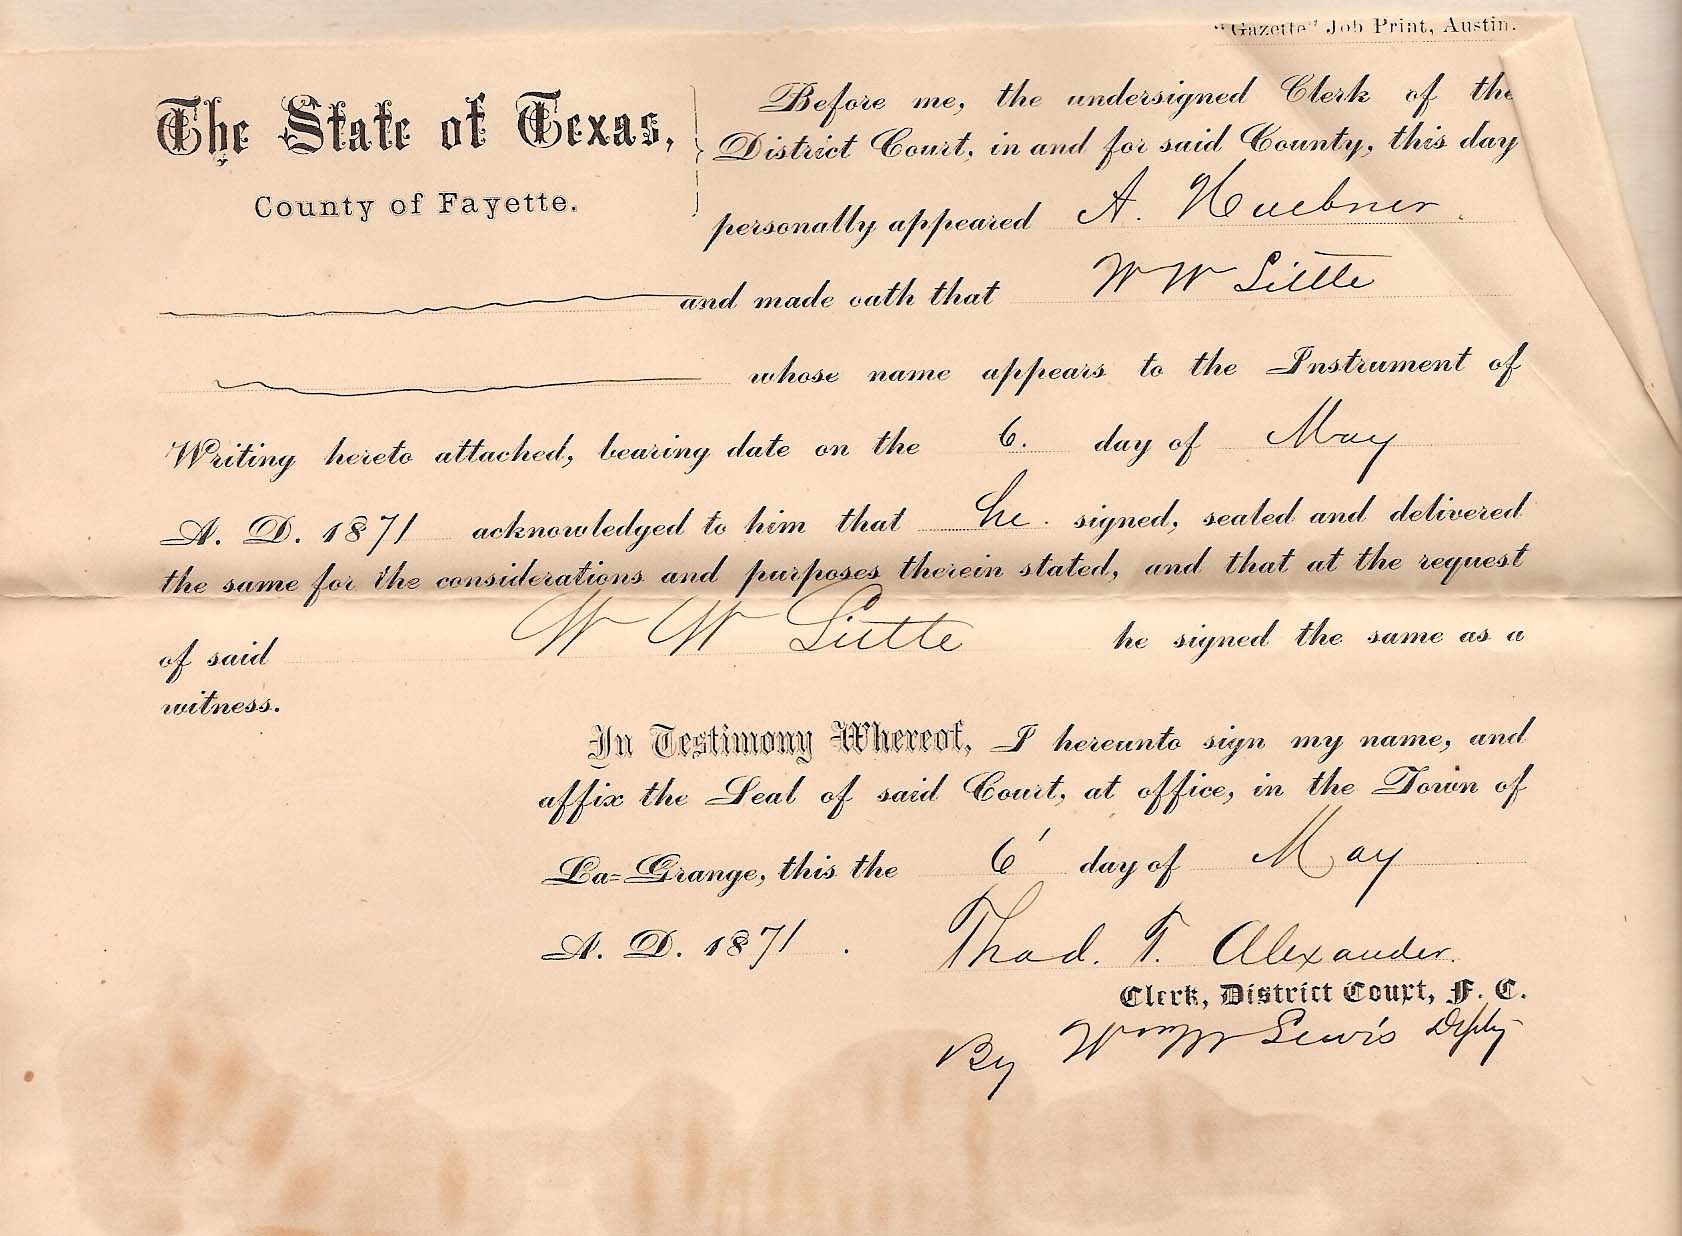 "Gazette" Job Print, Austin.
The State of Texas,
County of Fayette.
Before me, the undersigned Clerk of the
District Court, in and for said County, this day
personally appeared A. Huebner.
and made oath that W W Little
whose name appears to the Instrument of
Writing hereto attached, bearing date on the 6. day of May
A. D. 1871 acknowledged to him that he. signed, sealed and delivered
the same for the considerations and purposes therein stated, and that at the request
of said W W Little he signed the same as a
witness.
In Testimony Whereof, I hereunto sign my name, and
affix the Seal of said Court, at office, in the Town of
La=Grange, this the 6' day of May
A. D. 1871. Thad. T. Alexander.
Clerk, District Court, F. C.
By Wm Lewis Depty